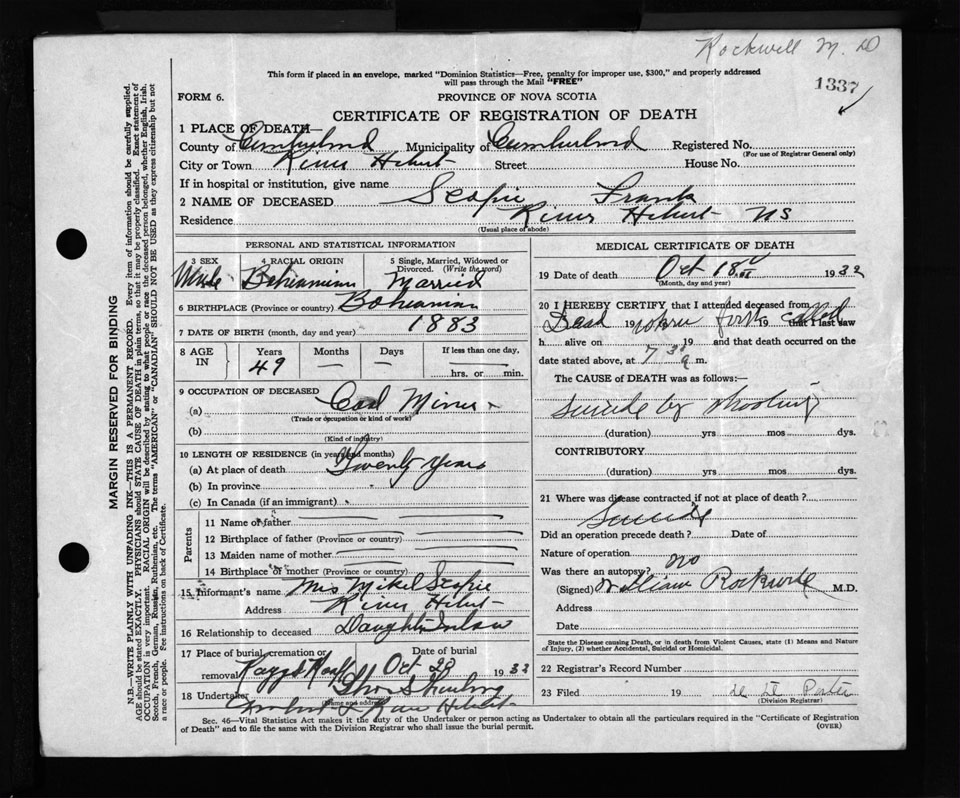 Rockwell M. D
This form if placed in an envelope, marked "Dominion Statistics—Free, penalty for improper use, $300," and properly addressed
will pass through the Mail "FREE"
1337
FORM 6. PROVINCE OF NOVA SCOTIA
CERTIFICATE OF REGISTRATION OF DEATH
1 PLACE OF DEATH—
County of Cumberland Municipality of Cumberland Registered No.
(For use of Registrar General only)
City or Town River Hebert Street House No.
If in hospital or institution, give name
2 NAME OF DECEASED Scopie Frank
Residence River Hebert NS
(Usual place of abode)
PERSONAL AND STATISTICAL INFORMATION
3 SEX 4 RACIAL ORIGIN 5 Single, Married, Widowed or Divorced. (Write the word)
Male Bohemian Married
6 BIRTHPLACE (Province or country) Bohemian
7 DATE OF BIRTH (month, day and year) 1883
8 AGE IN Years Months Days If less than one day,
49 — — hrs. or min.
9 OCCUPATION OF DECEASED
(a) Coal Miner
(Trade or occupation or kind of work)
(b)
(Kind of industry)
10 LENGTH OF RESIDENCE (in years and months)
(a) At place of death Twenty years
(b) In province
(c) In Canada (if an immigrant)
Parents
11 Name of father
12 Birthplace of father (Province or country)
13 Maiden name of mother
14 Birthplace of mother (Province or country)
15 Informant's name Mrs Mikel Scopie
Address River Hebert
16 Relationship to deceased Daughter in law
17 Place of burial, cremation or removal Date of burial
Oct 23 1932
18 Undertaker
(Name and address)
River Hebert
MEDICAL CERTIFICATE OF DEATH
19 Date of death Oct 18 1932
(Month, day and year)
20 I HEREBY CERTIFY, that I attended deceased from
Dead 19 when first 19 called that I last saw
h alive on 19 and that death occurred on the
date stated above, at 7 30 a m.
The CAUSE OF DEATH was as follows:—
Suicide by shooting
(duration) yrs mos dys.
CONTRIBUTORY
(duration) yrs mos dys.
21 Where was disease contracted if not at place of death?
Suicide
Did an operation precede death? Date of
Nature of operation
Was there an autopsy? no
(Signed) William Rockwell M.D.
Address
Date
State the Disease causing Death, or in death from Violent Causes, state (1) Means and Nature
of Injury, (2) whether Accidental, Suicidal or Homicidal.
22 Registrar's Record Number
23 Filed 19 Porter
(Division Registrar)
Sec. 46—Vital Statistics Act makes it the duty of the Undertaker or person acting as Undertaker to obtain all the particulars required in the "Certificate of Registration
of Death" and to file the same with the Division Registrar who shall issue the burial permit. (OVER)
MARGIN RESERVED FOR BINDING
N.B.—WRITE PLAINLY WITH UNFADING INK—THIS IS A PERMANENT RECORD. Every item of information should be carefully supplied.
AGE should be stated EXACTLY. PHYSICIANS should STATE CAUSE OF DEATH in plain terms, so that it may be properly classified. Exact statement of
OCCUPATION is very important. RACIAL ORIGIN will be described by stating to what people or race the deceased person belonged, whether English, Irish,
Scotch, French, German, Russian, Ruthenian, etc. The terms "AMERICAN" or "CANADIAN" SHOULD NOT BE USED as they express citizenship but not
a race or people. See instructions on back of Certificate.